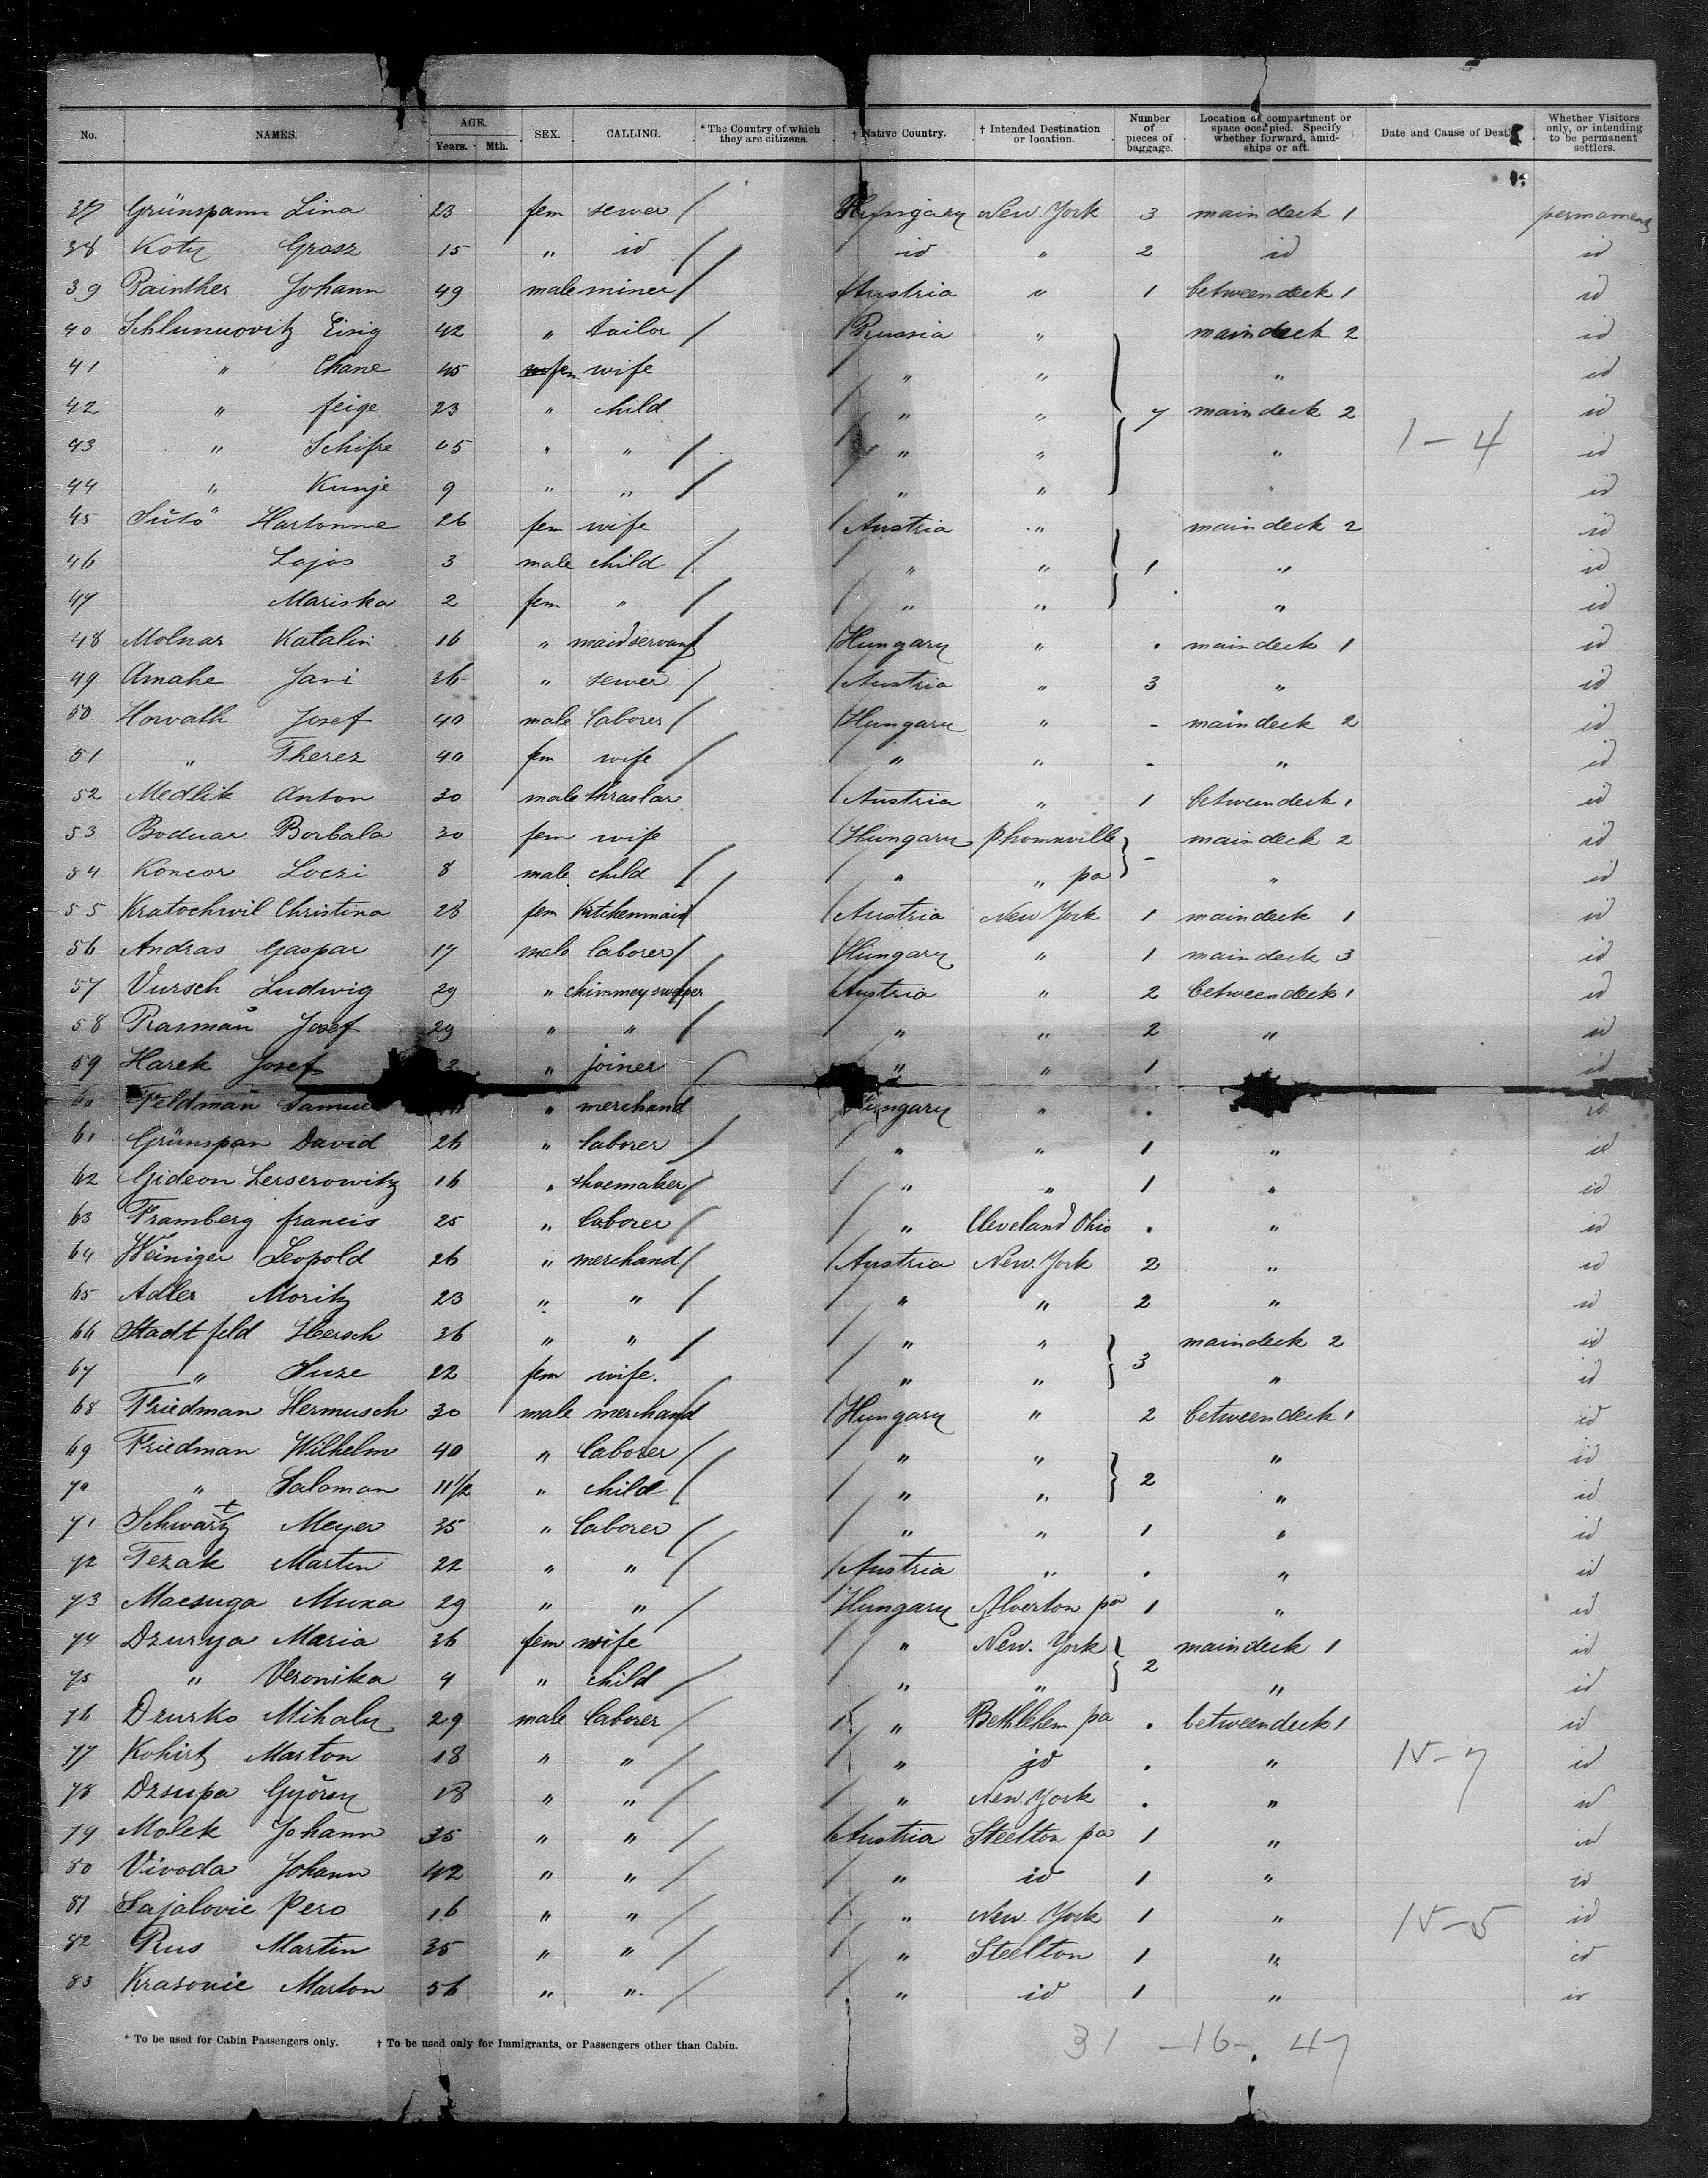 No. NAMES. AGE. Years. Mth. SEX. CALLING. * The Country of which they are citizens. † Native Country. † Intended Destination or location. Number of pieces of baggage. Location of compartment or space occupied. Specify whether forward, amidships or aft. Date and Cause of Death. Whether Visitors only, or intending to be permanent settlers.
37 Grünspann Lina 23 fem sewer / Hungary New York 3 maindeck 1 permanent
38 Koty Grosz 15 " id / id " 2 id id
39 Painther Johann 49 male miner / Austria " 1 betweendeck 1 id
40 Schlumuovitz Eisig 42 " tailor / Russia " maindeck 2 id
41 " Chane 45 fem wife " " " id
42 " feige 23 " child " " 7 maindeck 2 id
43 " Schifre 05 " " / " " " 1-4 id
44 " Kunje 9 " " / " " " id
45 Sütö Hartonne 26 fem wife / Austria " maindeck 2 id
46 Lajos 3 male child / " " 1 " id
47 Mariska 2 fem " / " " " id
48 Molnar Katalin 16 " maidservant / Hungary " . maindeck 1 id
49 Amahe Jani 36 " sewer / Austria " 3 " id
50 Horvath Josef 40 male laborer / Hungary " - maindeck 2 id
51 " Therez 40 fem wife / " " - " id
52 Medlik Anton 30 male thraslar / Austria " 1 betweendeck 1 id
53 Bodnar Borbala 30 fem wife / Hungary phomnville maindeck 2 id
54 Koncor Loczi 8 male child / " " pa - " id
55 Kratochwil Christina 28 fem Kitchenmaid / Austria New York 1 maindeck 1 id
56 Andras Gaspar 17 male laborer / Hungary " 1 maindeck 3 id
57 Vursch Ludwig 29 " chimmey sweeper Austria " 2 betweendeck 1 id
58 Rasman Josef 29 " " / " " 2 " id
59 Harek Josef " joiner / " " 1 id
60 Feldman Samuel " merchand Hungary " . id
61 Grünspan David 26 " laborer / " " 1 " id
62 Gideon Lerserowitz 16 " shoemaker / " " 1 " id
63 Framberg francis 25 " laborer / " Cleveland Ohio . " id
64 Weiniger Leopold 26 " merchand / Austria New York 2 " id
65 Adler Moritz 23 " " / " " 2 " id
66 Stadtfeld Hersch 36 " " / " " maindeck 2 id
67 " Suze 22 fem wife. " " 3 " id
68 Friedman Hermusch 30 male merchand / Hungary " 2 betweendeck 1 id
69 Friedman Wilhelm 40 " laborer / " " " id
70 " Salomon 11 1/2 " child / " " 2 " id
71 Schwartz Meyer 35 " laborer / " " 1 " id
72 Tezak Martin 22 " " / Austria " . " id
73 Macsuga Muxa 29 " " / Hungary Alverton pa 1 " id
74 Dzurya Maria 36 fem wife / " New York maindeck 1 id
75 " Veronika 4 " child / " " 2 " id
76 Dzurko Mihaly 29 male laborer / " Bethlehem pa . betweendeck 1 id
77 Kohirt Marton 18 " " / " id . " 15-7 id
78 Dzsupa Györey 18 " " / " New York . " id
79 Molek Johann 35 " " / Austria Steelton pa 1 " id
80 Vivoda Johann 42 " " / " id 1 " id
81 Sajalovic Pero 16 " " / " New York 1 " 15-5 id
82 Rus Martin 35 " " / " Steelton 1 " id
83 Krasovic Marton 56 " " / " id 1 " id
* To be used for Cabin Passengers only. † To be used only for Immigrants, or Passengers other than Cabin.
31 -16-. 47